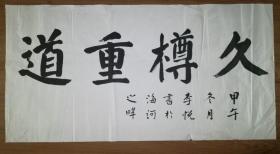 久樽重道
甲午
冬月
李悦
書於
海河
之畔